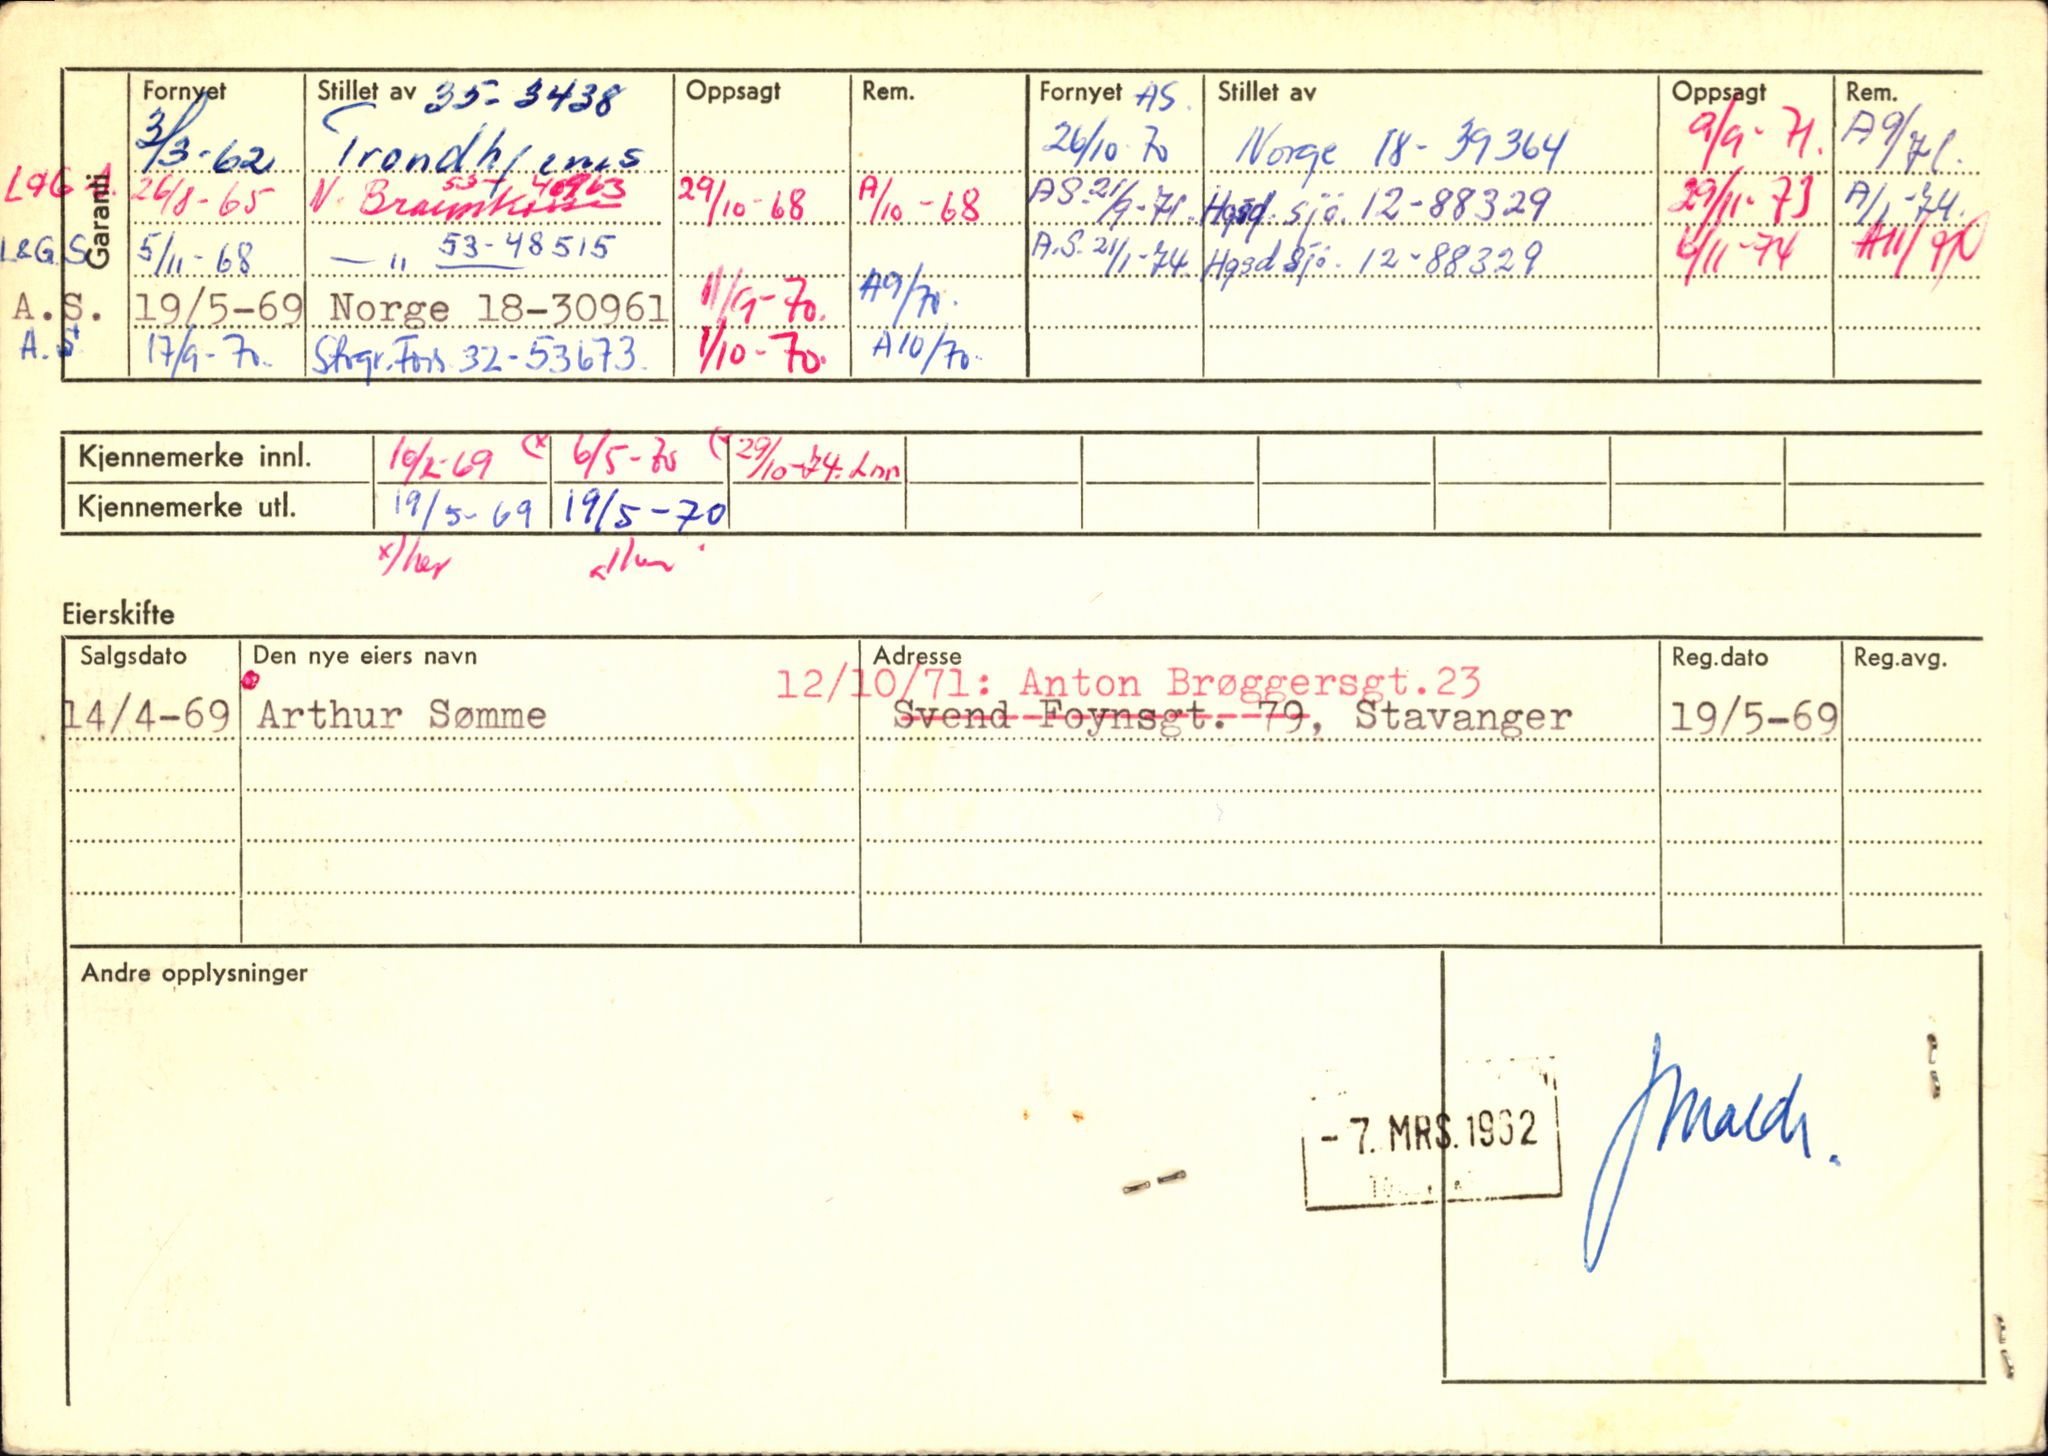 Garanti
Fornyet Stillet av 35-3438 Oppsagt Rem. Fornyet AS. Stillet av Oppsagt Rem.
3/3-62 Trondhjems 26/10-70 Norge 18-39364 9/9-71. A9/71.
L&G A. 26/8-65 N. 55-40963 29/10-68 A/10-68 AS. 21/9-71. Hgsd. sjö. 12-88329 29/11-73 A/1-74.
L&G S. 5/11-68 — " 53-48515 A.S. 21/1-74 Hgsd sjö. 12-88329 6/11-74
A.S. 19/5-69 Norge 18-30961 11/9-70. A9/70.
A.S. 17/9-70. Strgr. Fors. 32-53673. 1/10-70. A10/70.
Kjennemerke innl. 10/2-69 (x 6/5-70 29/10-74.
Kjennemerke utl. 19/5-69 19/5-70
Eierskifte
Salgsdato Den nye eiers navn Adresse Reg.dato Reg.avg.
12/10/71: Anton Brøggersgt.23
14/4-69 Arthur Sømme Svend Foynsgt. 79, Stavanger 19/5-69
Andre opplysninger
-7. MRS. 1962